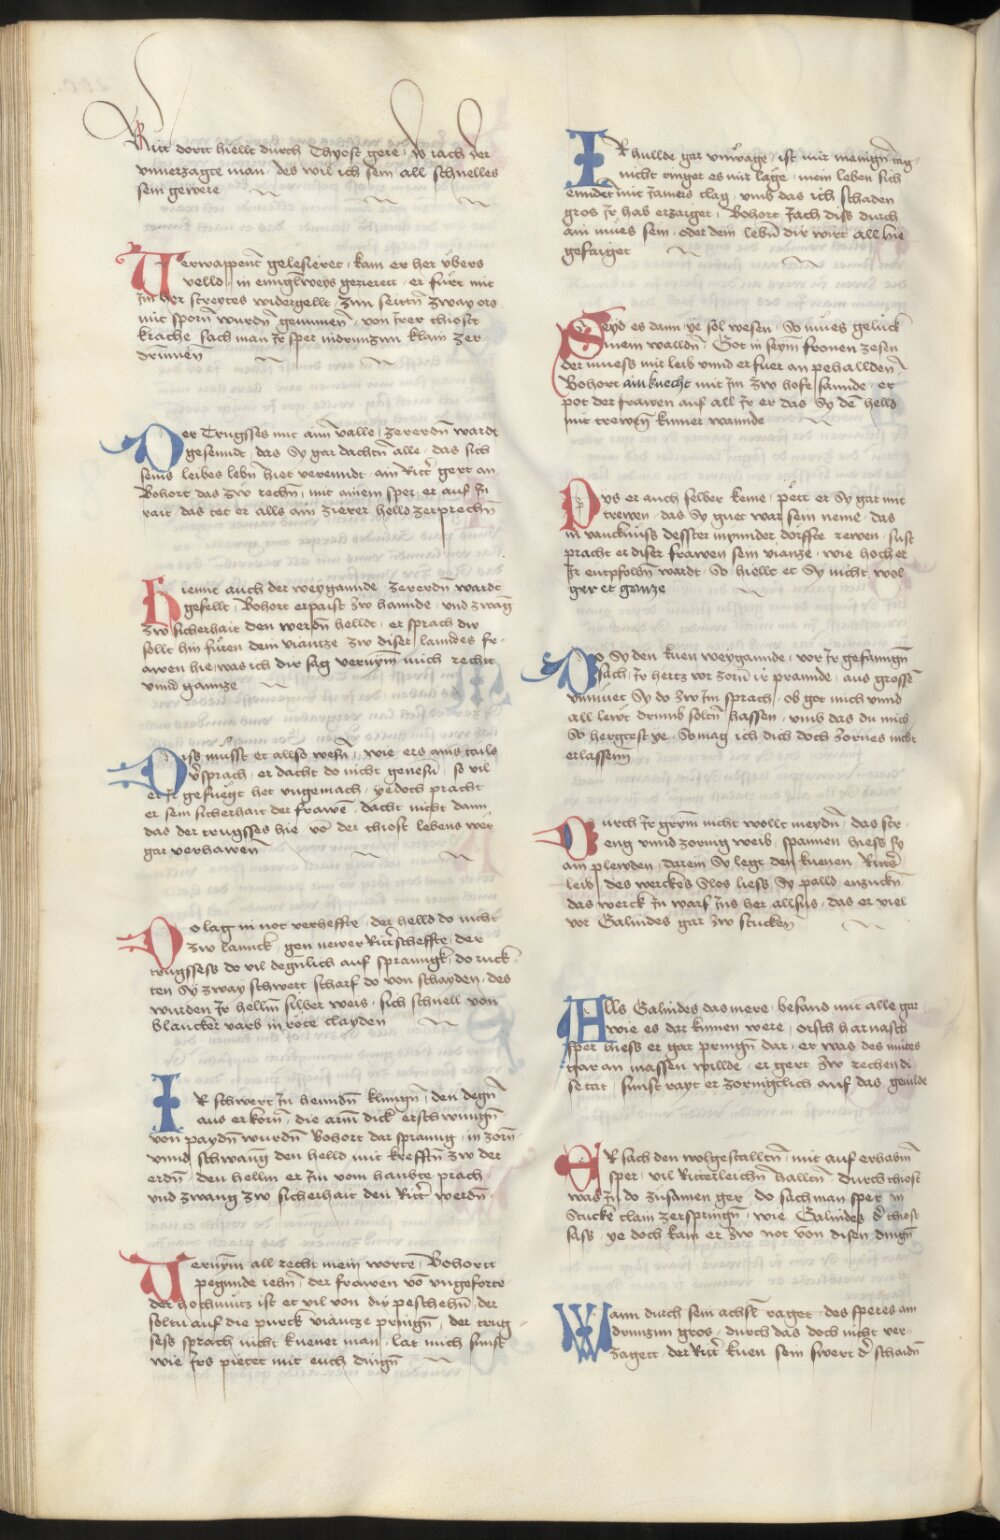 Ritt dortt hiellt durch Thyost gere · so iach der
vnuerzagte man · des wil ich sein all schnelles
sein gewere
Verwappent gelesieret · kam er her vbers
velld · in einiglweys gezierett · er fürt mit
Im der streytes widergellt · zun seittn zway ors
mit sporn wurdn genumen · von Irer thiostt
krache sach man Ir sper indrunzun klain zer
drinnen
Der Trugsses mit aim valle · zererdn wardt
gesenndt · das Sy gar dachtn alle · das sich
seins leibes lebn hiet verenndt · ain Rittr gert an
Bohort das zw rechn · mit ainem sper er auf In
rait · das tet er alls ain zierer helld zerprechn
Hiemit auch der weygannde · zererdn wardt
gefellt · Bohort erpaist zw hannde · vnd zwang
zw sicherhait den werdn helldt · er sprach dw
sollt hin füren dein viantze zw diser lanndes fr
awen hie was ich dir sag vernym mich recht
vnnd gannze
Diss müsst et allso wesn · wie ers ains tails
versprach · er dacht do nicht genesn · so vil
er Ir gefuegt het vngemach · yedoch pracht
er sein sicherhait der frawen · dacht nicht dann
das der trugsses hie vo der thiost lebens wer
gar verhawen
Do lag in not verheffte · der helld do nicht
zw lannck · gen newer Rittrscheffte · der
trugssess do vil degnlich auf spranngk · do ruck
ten Sy zway schwert scharf do von schayden · des
wurden Ir hellm silber weis · sich schnell von
blancker varb in röte clayden
Ir schwert In henndn klungn · den degn
aus erkorn · die arm dick erschwungn
von paydn wurdn Bohort dar sprang · in zorn
vnnd schwang den helld mit krefftn zw der
erdn · den hellm er Im vom haubte prach
vnd zwang zw sicherhait den Rittr werdn
Vernym all recht mein worte · Bohortt
pegunde iehn · der frawen vo vngeforte
der hochmütz ist et vil von dir peschehn · der
soltu auf die purck viantze pringn · der trug
sess sprach nicht kuener man · lat mich sunst
wie Irs pietet mit euch dingn
Ir hullde gar vnwage · ist mir menign tag
nicht ringer es mir lage · mein leben sich
enndet mit Jamers clag · vmb das ich schaden
gros Ir hab erzaiget · Bohort Jach diss durch
ain mues sein · oder dein lebn dir wirt all hie
gefaiget
Seyd es dann ye sol wesen · So mues geluck
mein walldn · Got in seym fronen zesen
der muess mir leib vnnd er fuer an pehallden
Bohort ain knecht mit Im zw hofe sannde · er
pot der frawen auf all Ir er das Sy de helld
mit trewen kumer wannde
Bys er auch selber keme · pett er Sy gar mit
trewen · das Sy guet war sein neme · das
in vanckniss desster mynnder dörffte rewen · sust
pracht er diser frawen sein vianze · wie hoch er
Ir entpfolhn wardt · So hiellt et Sy nicht wol
ger er ganze
Do Sy den kuen weygannde · vor Ir gefanngn
sach · Ir hertz vor zorn ir prannde · aus grosse
vnmuet Sy do zw Im sprach · ob got mich vnnd
all lewt drumb soltn hassen · vmb das du mich
So hergest ye · So mag ich dich doch zornes nicht
erlassenn
Durch Ir grym nicht wollt meydn · das str
eng vnnd zornig weib · spannen hiess sy
ain plewden · darein Sy legt den kuenen Rittrs
leib · des werckes Slos liess Sy palld enzuckn
das werck In warf Ins her allsus · das er viel
vor Galindes gar zw stucken
Alls Galindes das mere · befand mit alle gar
wie es dar kumen were · orsch harnasch
sper hiess er gar pringn dar · er was des mutes
gar an massen willde · er gert zw rechen di
se tat · sunst rayt er zornigclich auf das geuilde
Er sach den wolgestalltn · mit auf erhabm
sper · vil Ritterleichn halltn · durch thiost
was In do zusamen ger · do sach man sper in
Stucke clain zerspringn · wie Galindes der thiost
sass · ye doch kam er zw not von disen dingn
Wann durch sein achsl raget · des speres ain
drunzun gros · durch das doch nicht ver
zagett · der Rittr kuen sein swert der schaidn